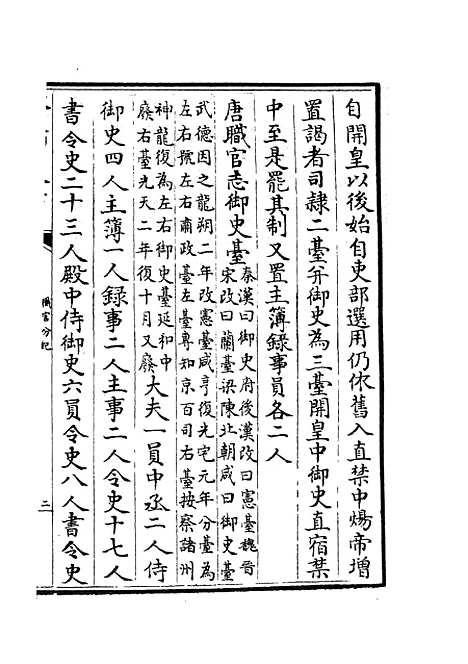 自開皇以後始自吏部選用仍依舊入直禁中煬帝增
置謁者司隸二臺并御史為三臺開皇中御史直宿禁
中至是罷其制又置主簿錄事員各二人
唐職官志御史臺秦漢曰御史府後漢改曰憲臺魏晉
宋改曰蘭臺梁陳北朝咸曰御史臺
武德因之龍朔二年改憲臺咸亨復光宅元年分臺為
左右號左右肅政臺左臺專知京百司右臺按察諸州
神龍復為左右御史臺延和中
廢右臺先天二年復十月又廢大夫一員中丞二人侍
御史四人主簿一人錄事二人主事二人令史十七人
書令史二十三人殿中侍御史六員令史八人書令史
職官分紀
二